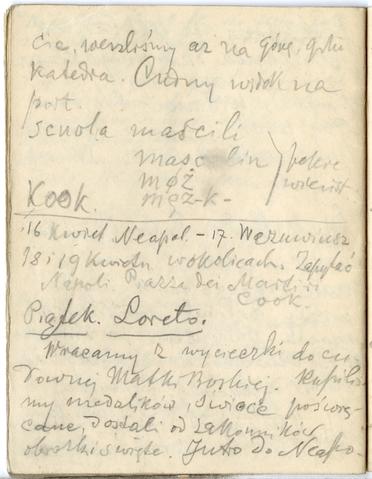 cie, weszliśmy aż na górę, gdzie
katedra. Cudny widok na
port.
scuola maschili
mascolin
mąż
męz-k-
pokre
wieńst
Kook.
16 kwiet Neapol – 17. Wezuwiusz
18 i 19 kwietn w okolicach. Zapytać
Napoli Piazza dei Martiri
Cook.
Piątek. Loreto.
Wracamy z wycieczki do cu-
downej Matki Boskiej. Kupiliś-
my medalików, świece poświę-
cane, dostali od zakonników
obrazki święte. Jutro do Neapo-